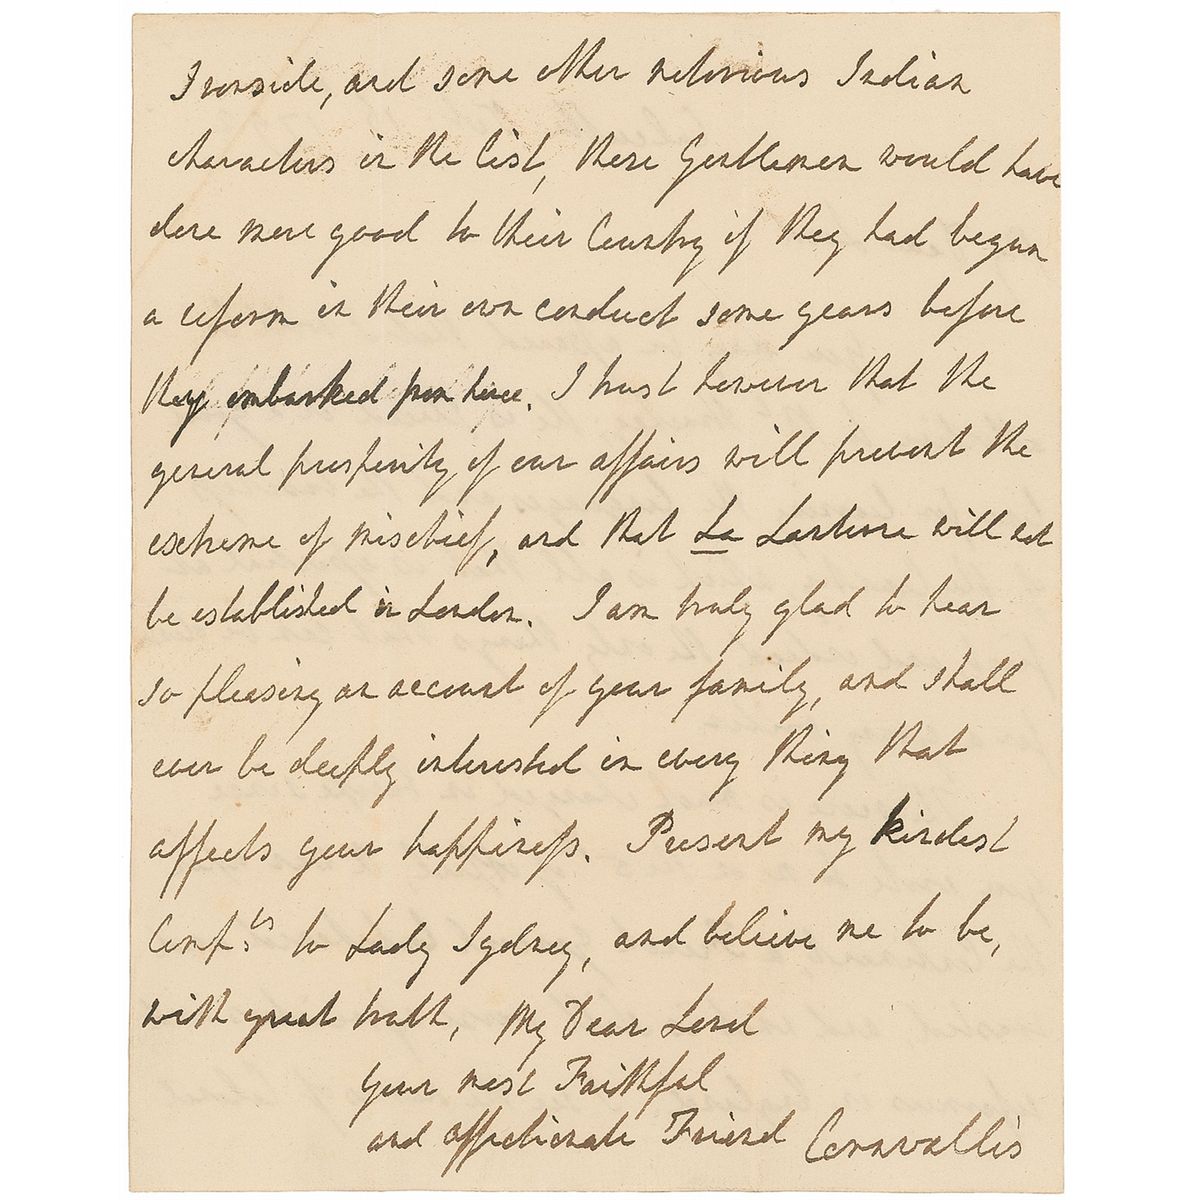 Ironside, and some other notorious Indian
characters in the list, these Gentlemen would have
done more good to their Country if they had begun
a reform in their own conduct some years before
they embarked from hence. I trust however that the
general prosperity of our affairs will prevent the
extreme of mischief, and that La Lanterne will not
be established in London. I am truly glad to hear
so pleasing an account of your family, and shall
ever be deeply interested in every thing that
affects your happiness. Present my kindest
Comp.ts to Lady Sydney, and believe me to be,
with great truth, My Dear Lord
Your most Faithful
and affectionate Friend Cornwallis